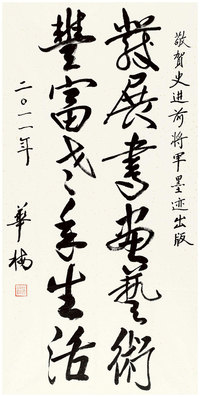 敬賀史进前將軍墨迹出版
發展書畫藝術
豐富老年生活
二〇一一年
華楠